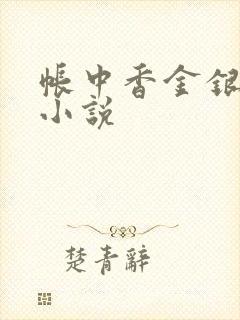 帳中香金銀
小說
楚青辭